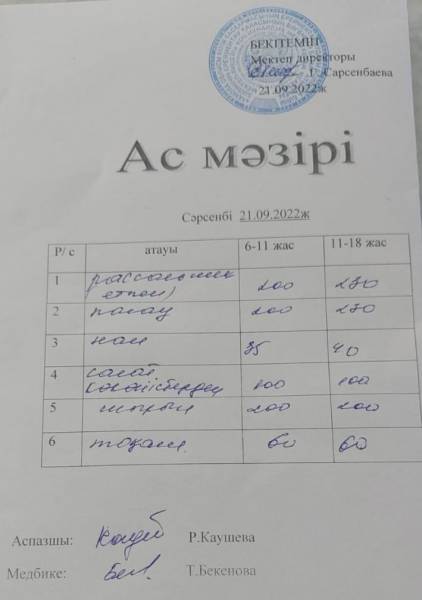 БЕКІТЕМІН
Мектеп директоры
Г. Сарсенбаева
21.09.2022ж
Ас мәзірі
Сәрсенбі 21.09.2022ж
Р/с атауы 6-11 жас 11-18 жас
1 рассольник етпен) 200 250
2 палау 200 250
3 нан 35 40
4 салат 100 100
5 200 200
6 тоқаш 60 60
Аспазшы: Р.Каушева
Медбике: Т.Бекенова